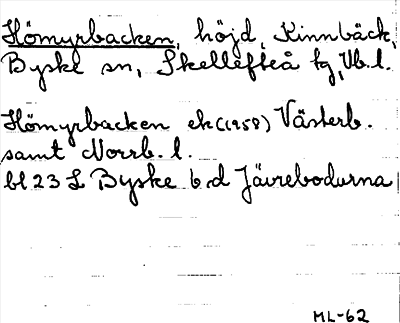 Hömyrbacken, höjd, Kinnbäck,
Byske sn, Skellefteå kg, Vb. l.
Hömyrbacken ek (1958) Västerb.
samt Norrb. l.
bl 23 L Byske 6 d Jävrebodarna
ML-62